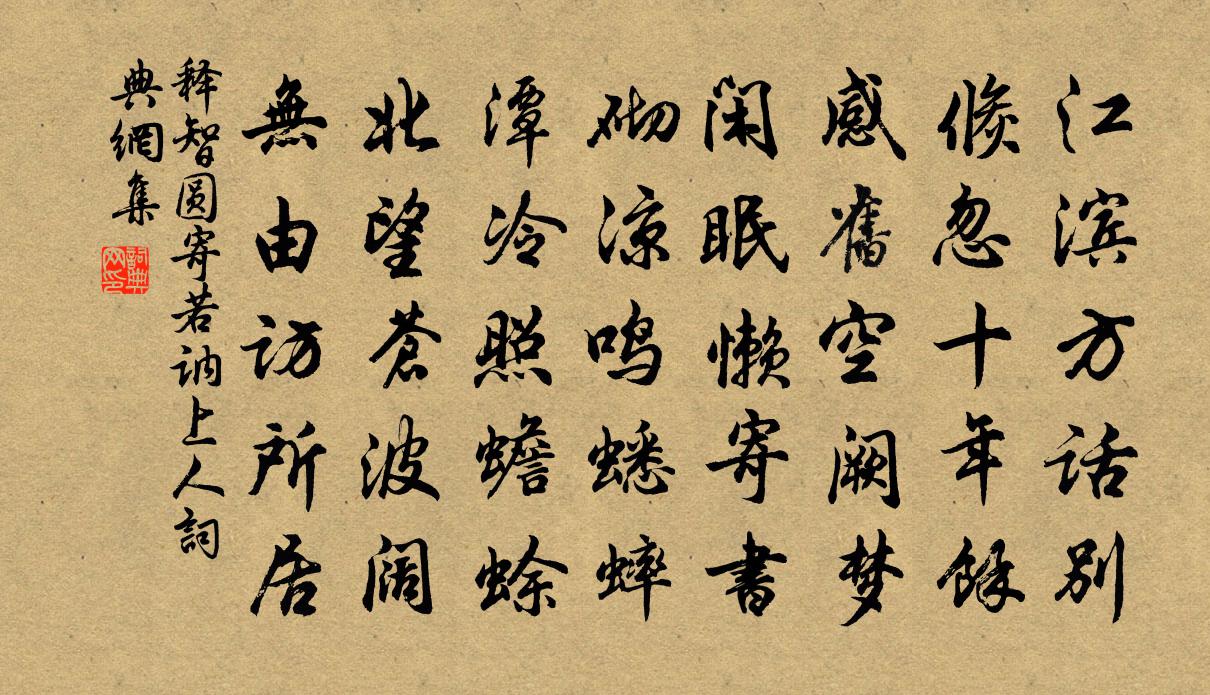 江滨方话别
倏忽十年馀
感舊空阙梦
闲眠懒寄書
砌凉鸣蟋蟀
潭冷照蟾蜍
北望苍波阔
無由访所居
释智圆寄若讷上人詞
典網集
詞典网印